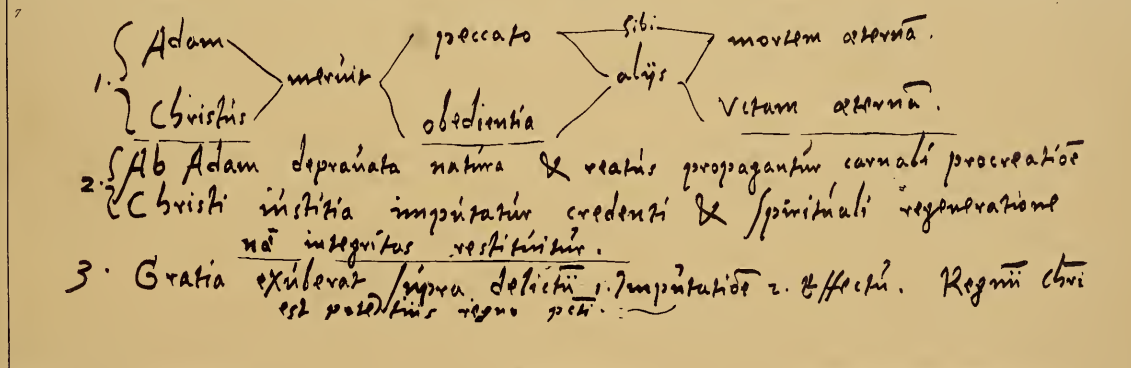 7
Adam peccato sibi mortem æternā.
1. meruit alijs
Christus obedientia Vitam æternā.
2. Ab Adam deprauata natura & reatus propagantur carnali procreatiōe
Christi iustitia imputatur credenti & spirituali regeneratione
nā integritas restituitur.
3. Gratia exuberat supra delictū 1. Imputatiōe 2. Effectu. Regnū chri
est potētius regno pcti.